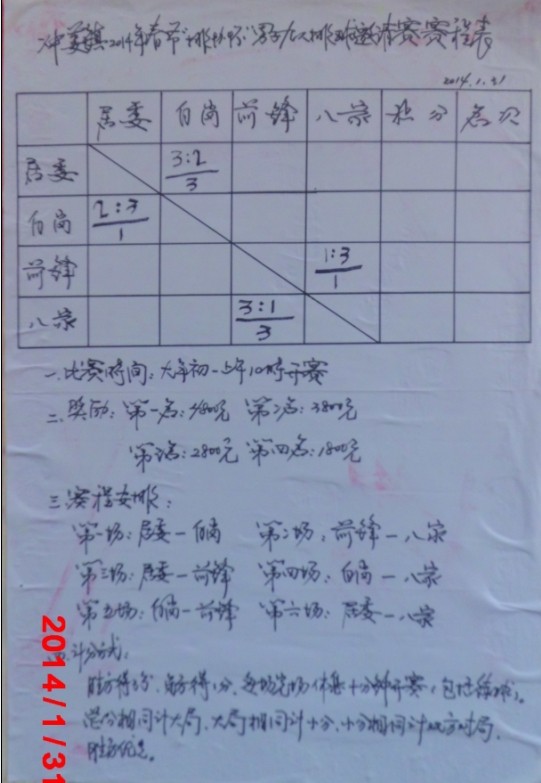 冲蒌镇2014年春节"排协杯"男子九人排球邀请赛赛程表
2014.1.31
居委 白岗 前锋 八家 积分 名次
居委 3:2 3
白岗 2:3 1
前锋 1:3 1
八家 3:1 3
一.比赛时间:大年初一上午10时开赛
二.奖励:第一名:4800元 第二名:3800元
第三名:2800元 第四名:1800元
三.赛程安排:
第一场:居委—白岗 第二场:前锋—八家
第三场:居委—前锋 第四场:白岗—八家
第五场:白岗—前锋 第六场:居委—八家
四.计分方式:
胜方得3分,负方得1分,每场完场休息十分钟开赛(包括练球)。
总分相同计大局,大局相同计小分,小分相同计双方对局,
胜方优先。
2014/1/31